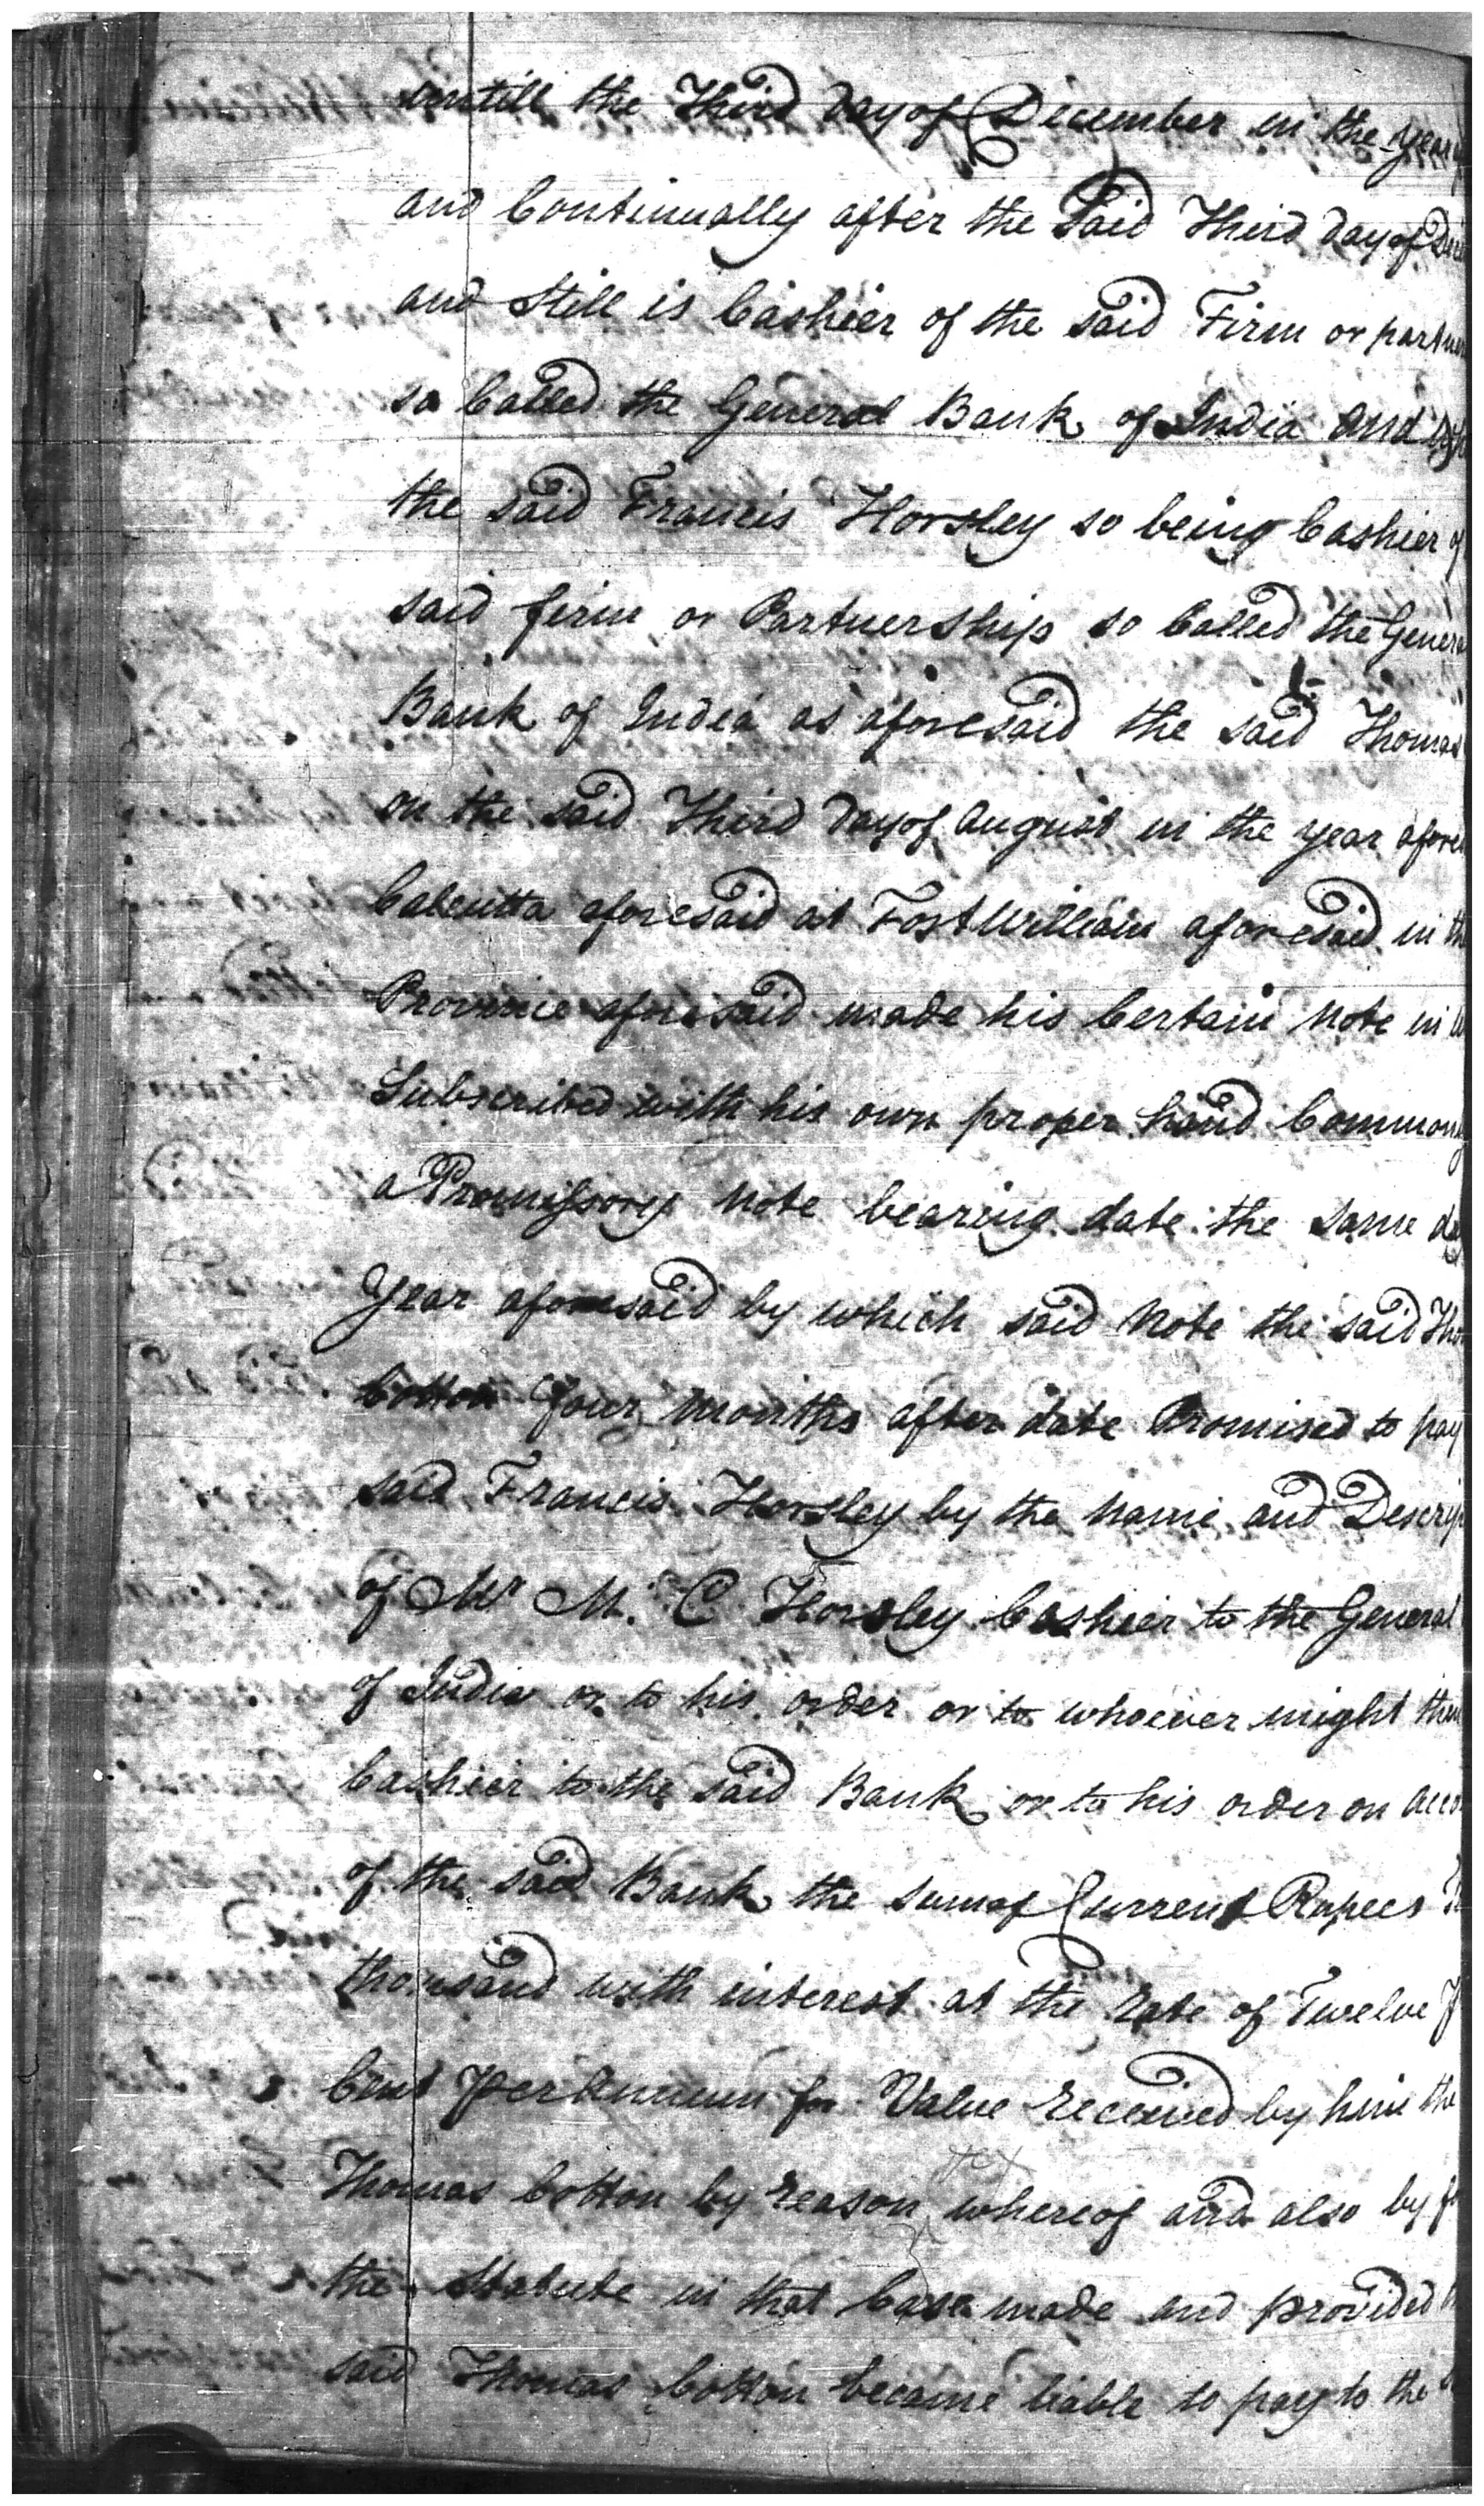 untill the Third day of December in the year
and Continually after the Said Third day of
and still is Cashier of the said Firm or partner
so Called the General Bank of India and
the said Francis Horsley so being Cashier of
said firm or Partnership so Called the Genera
Bank of India as aforesaid the said Thomas
on the said Third day of August in the year afore
Calcutta aforesaid at Fort William aforesaid in th
Province aforesaid made his Certain Note in
Subscribed with his own proper hand Common
a Promissory Note bearing date the same da
Year aforesaid by which said Note the said Tho
Cotton four months after date Promised to pay
said Francis Horsley by the name and Descrip
of Mr M. C Horsley Cashier to the General
of India or to his order or to whoever might then
Cashier to the said Bank or to his order on acco
of the said Bank the sum of Current Rupees
thousand with interest at the rate of Twelve P
Cent Per Annum for Value received by him the
Thomas Cotton by reason whereof and also by fo
the Statute in that Case made and provided
said Thomas Cotton became liable to pay to the